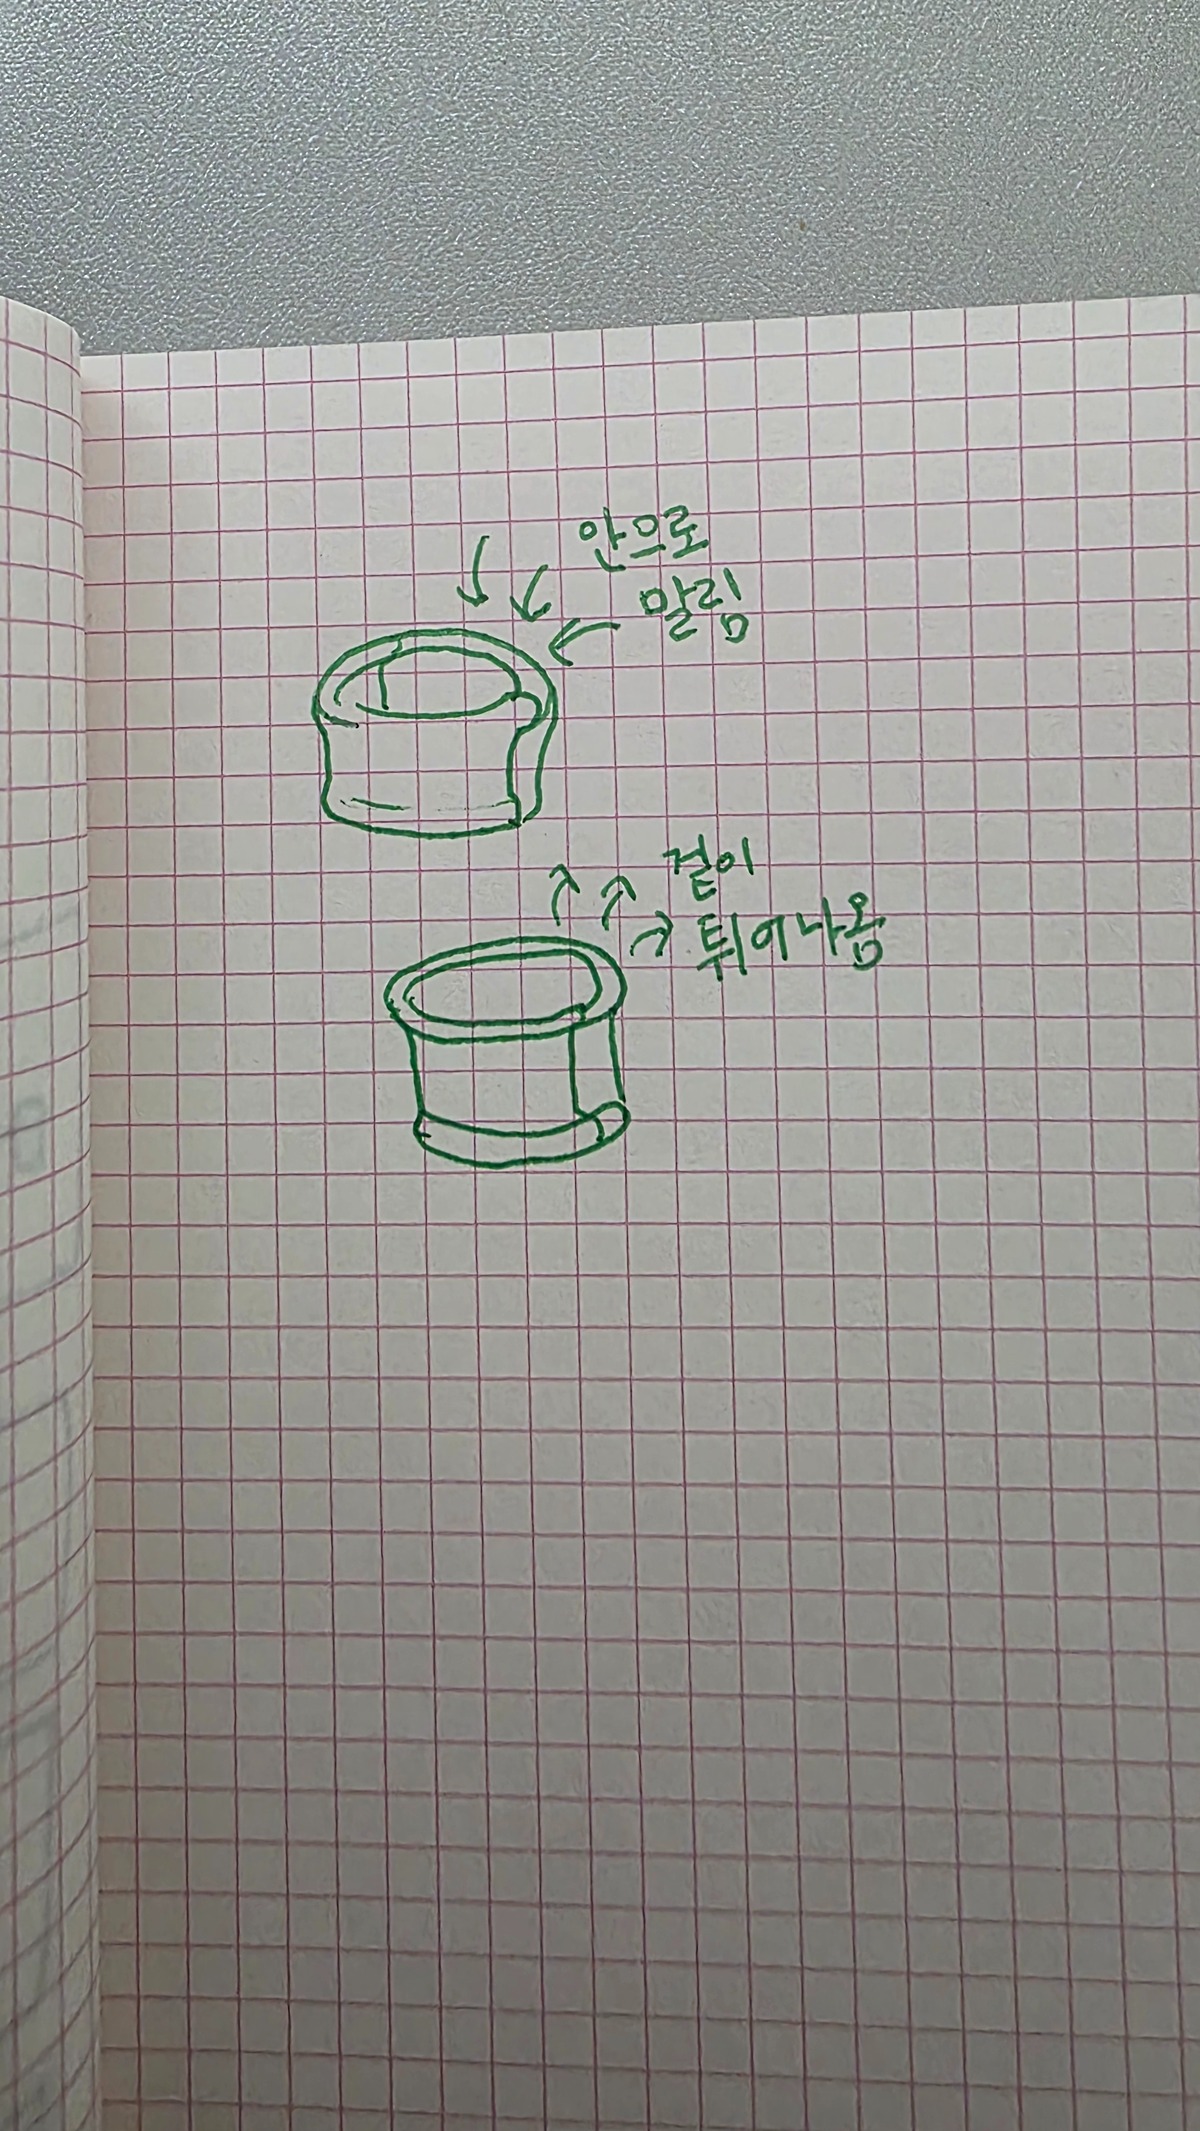 안으로
말림
겉이
튀어나옴